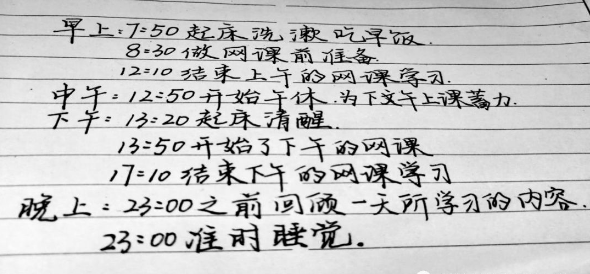 早上:7:50起床洗漱吃早饭.
8:30做网课前准备
12:10结束上午的网课学习.
中午:12:50开始午休.为下文午上课蓄力.
下午:13:20起床清醒.
13:50开始了下午的网课
17:10结束下午的网课学习
晚上:23:00之前回顾一天所学习的内容.
23:00准时睡觉.